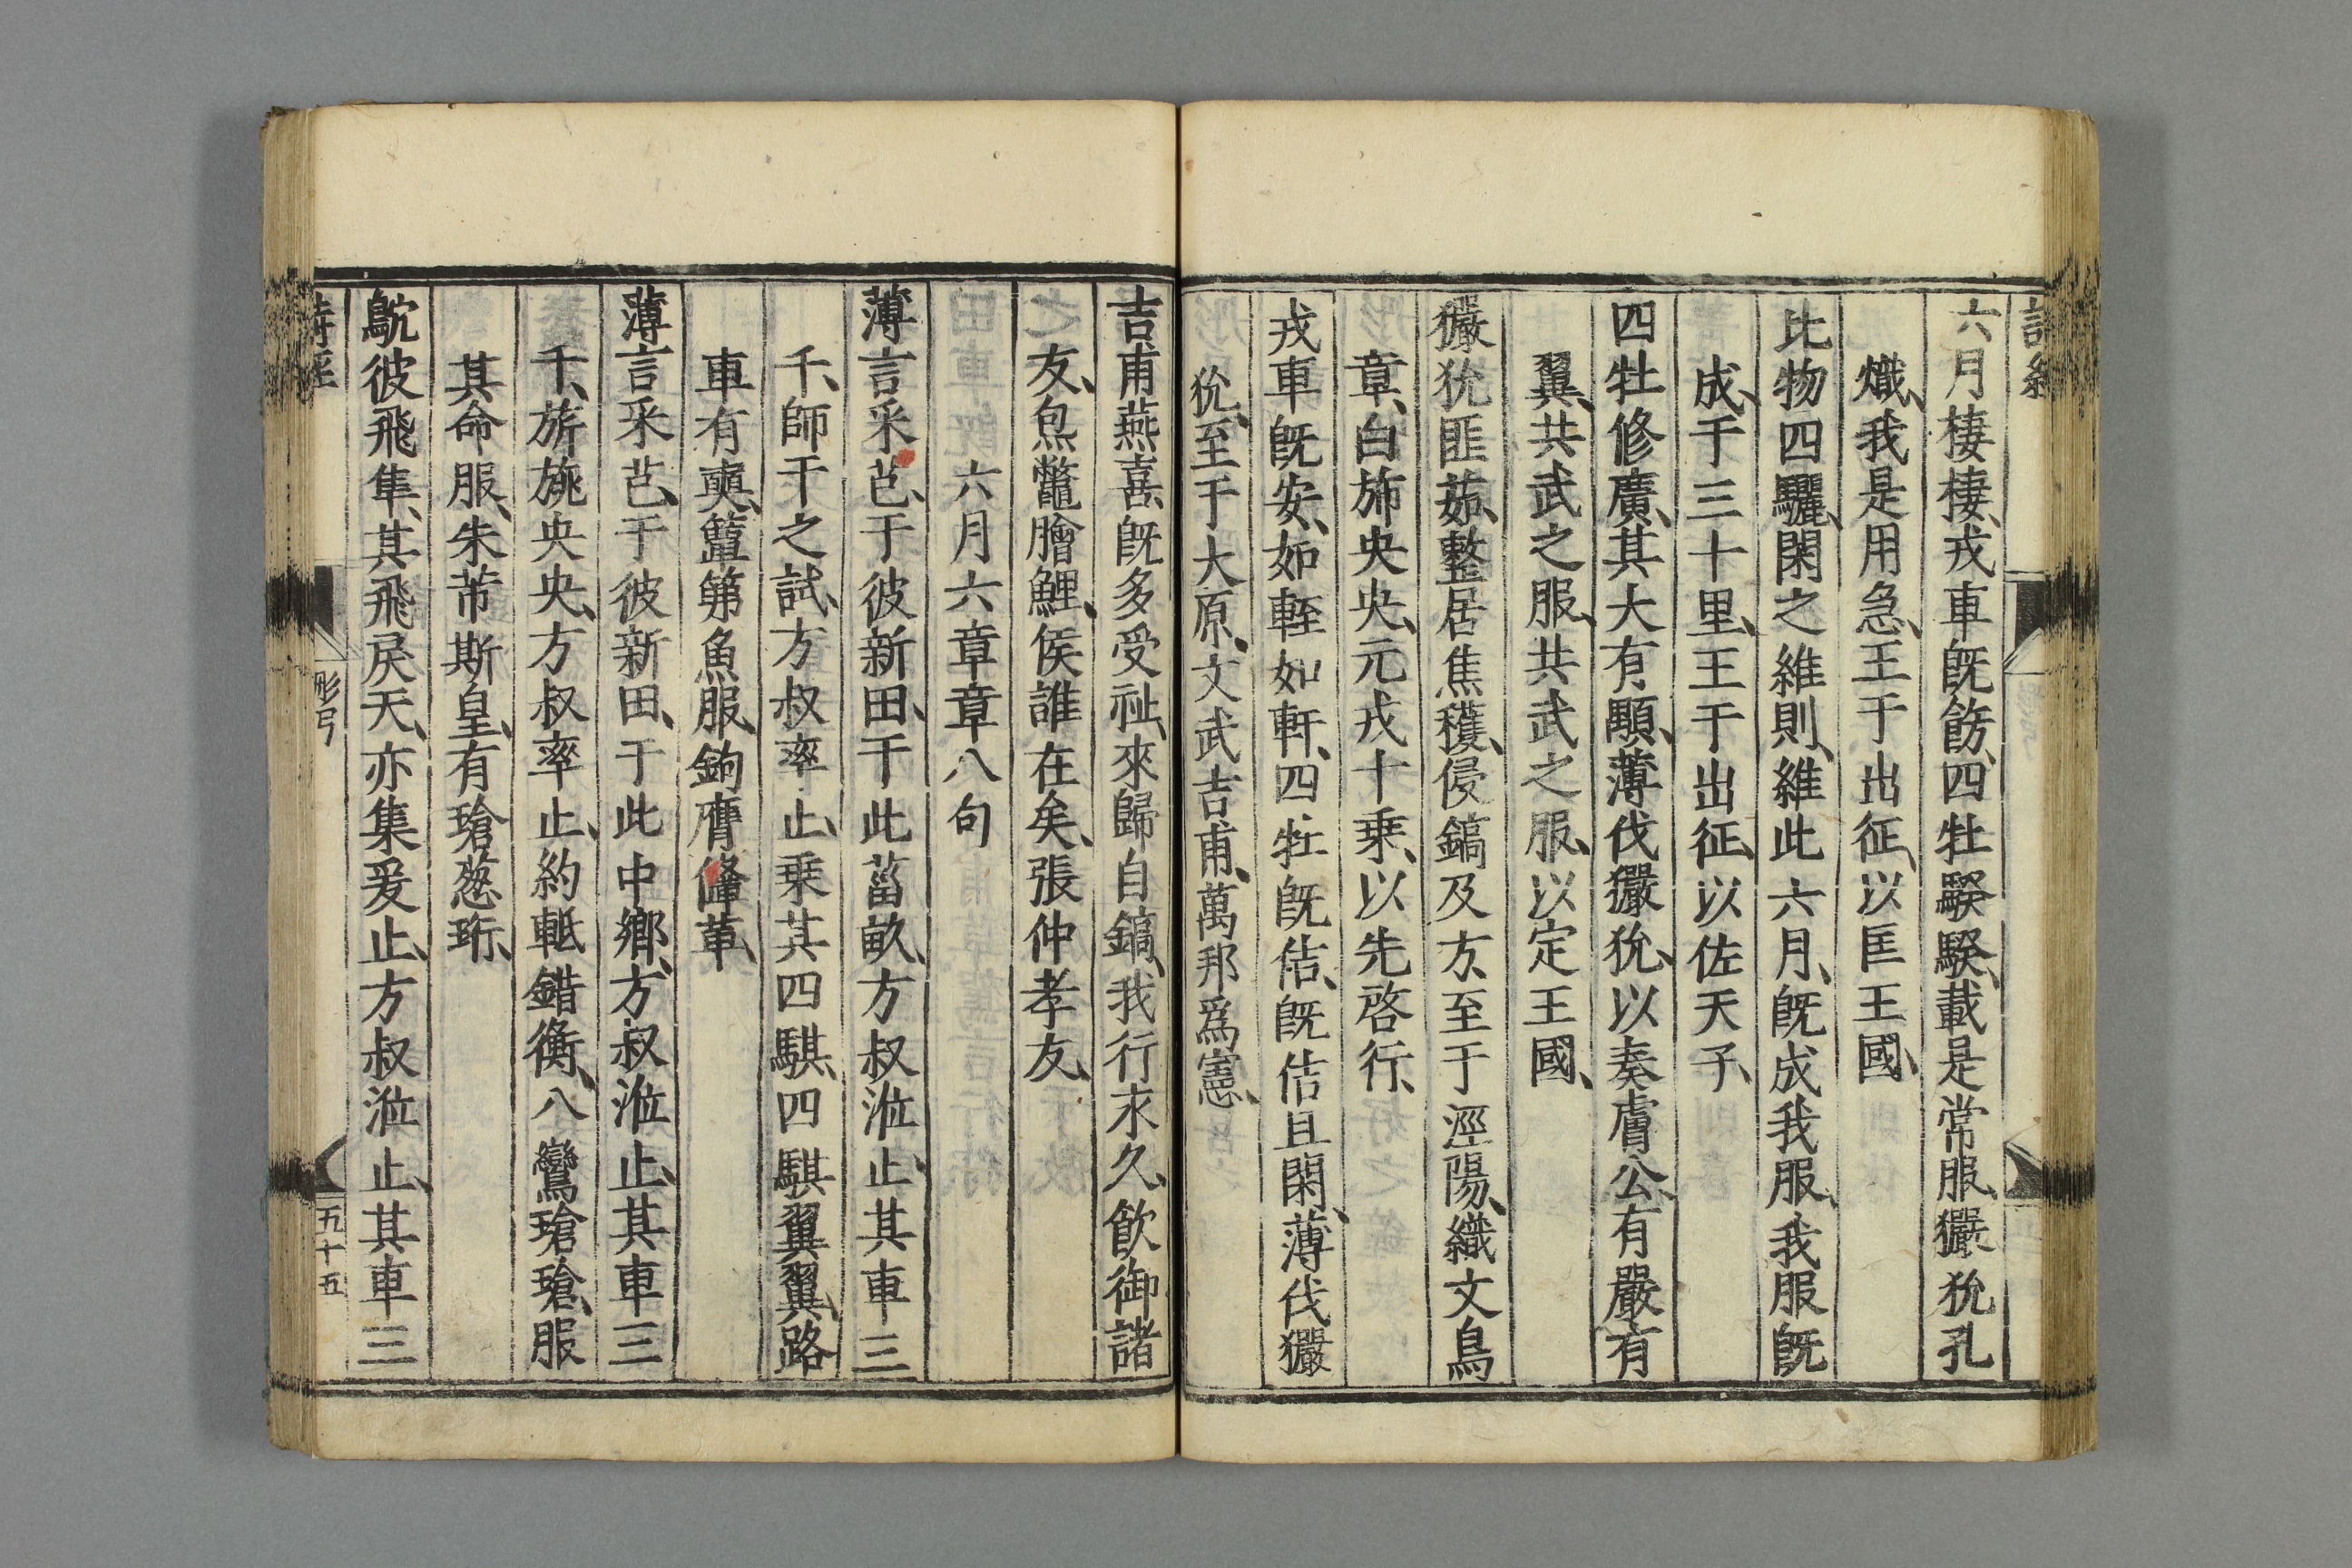 六月棲棲、戎車旣飭、四牡騤騤、載是常服、玁狁孔
熾、我是用急、王于出征、以匡王國、
比物四驪、閑之維則、維此六月、旣成我服、我服旣
成、于三十里、王于出征、以佐天子、
四牡修廣、其大有顒、薄伐玁狁、以奏膚公、有嚴有
翼、共武之服、共武之服、以定王國、
玁狁匪茹、整居焦穫、侵鎬及方、至于涇陽、織文鳥
章、白斾央央、元戎十乗、以先啓行、
戎車旣安、如輊如軒、四牡旣佶、旣佶且閑、薄伐玁
狁、至于大原、文武吉甫、萬邦爲憲、
吉甫燕喜、旣多受祉、來歸自鎬、我行永久、飮御諸
之友、炰鼈膾鯉、侯誰在矣、張仲孝友、
六月六章章八句
薄言采芑、于彼新田、于此菑畝、方叔涖止、其車三
千、師干之試、方叔率止、乗其四騏、四騏翼翼、路
車有奭、簟笰魚服、鉤膺鞗革、
薄言采芑、于彼新田、于此中鄉、方叔涖止、其車三
千、旂旐央央、方叔率止、約軧錯衡、八鸞瑲瑲、服
其命服、朱芾斯皇、有瑲葱珩、
鴥彼飛隼、其飛戾天、亦集爰止、方叔涖止、其車三
詩經 彤弓 五十五